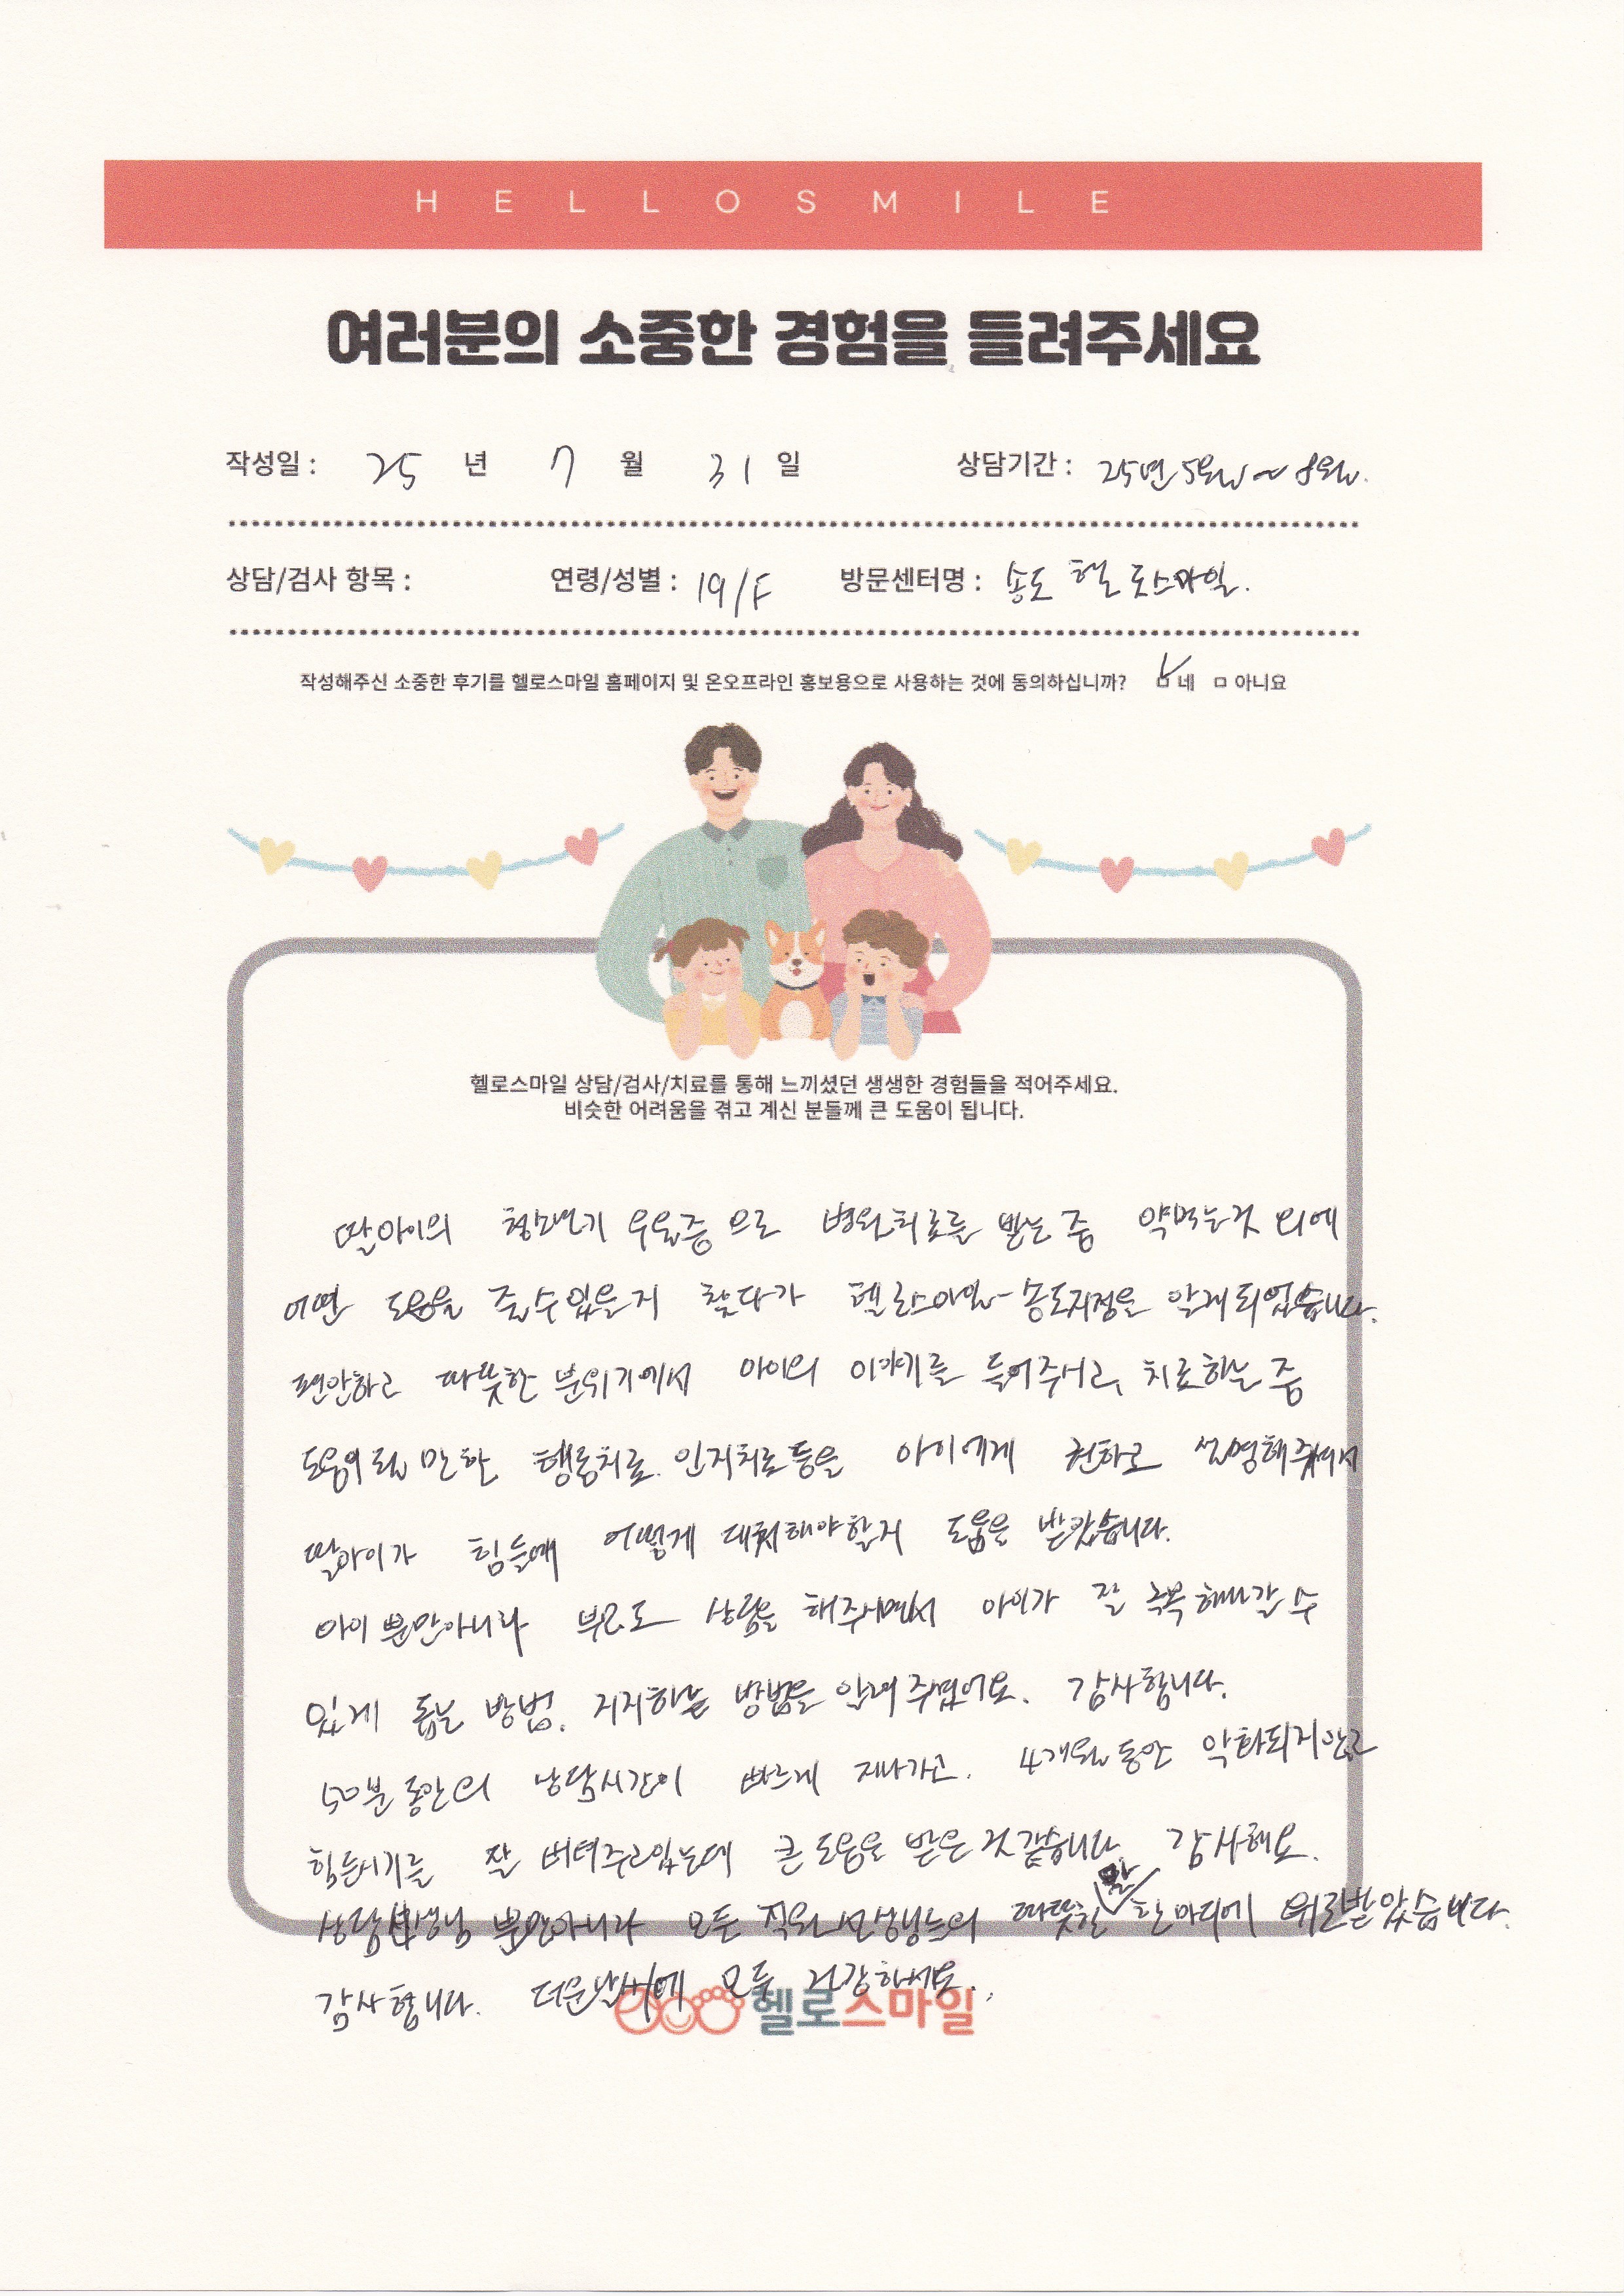 HELLOSMILE
여러분의 소중한 경험을 들려주세요
작성일 : 25 년 7 월 31 일 상담기간 : 25년 5월 ~ 8월.
상담/검사 항목 : 연령/성별 : 19/F 방문센터명 : 송도 헬로스마일.
작성해주신 소중한 후기를 헬로스마일 홈페이지 및 온오프라인 홍보용으로 사용하는 것에 동의하십니까? ㅁ네 ㅁ아니요
헬로스마일 상담/검사/치료를 통해 느끼셨던 생생한 경험들을 적어주세요.
비슷한 어려움을 겪고 계신 분들께 큰 도움이 됩니다.
딸아이의 청소년기 우울증으로 병원치료를 받는 중 약먹는것 외에
어떤 도움을 줄수있을지 찾다가 헬로스마일-송도지점을 알게되었습니다.
편안하고 따뜻한 분위기에서 아이의 이야기를 들어주시고, 치료하는 중
도움이 될만한 행동치료. 인지치료등을 아이에게 권하고 설명해주셔서
딸아이가 힘들때 어떻게 대처해야할지 도움을 받았습니다.
아이 뿐만아니라 부모도 상담을 해주시면서 아이가 잘 극복해나갈 수
있게 돕는 방법. 지지하는 방법을 알려주셨어요. 감사합니다.
50분 동안의 상담시간이 빠르게 지나가고. 4개월동안 악화되지않고
힘든시기를 잘 버텨주고있는데 큰 도움을 받은 것 같습니다. 감사해요.
상담선생님 뿐만아니라 모든 직원 선생님들의 따뜻한 말 한마디에 위로받았습니다.
감사합니다. 더운날씨에 모두 건강하세요.
헬로스마일